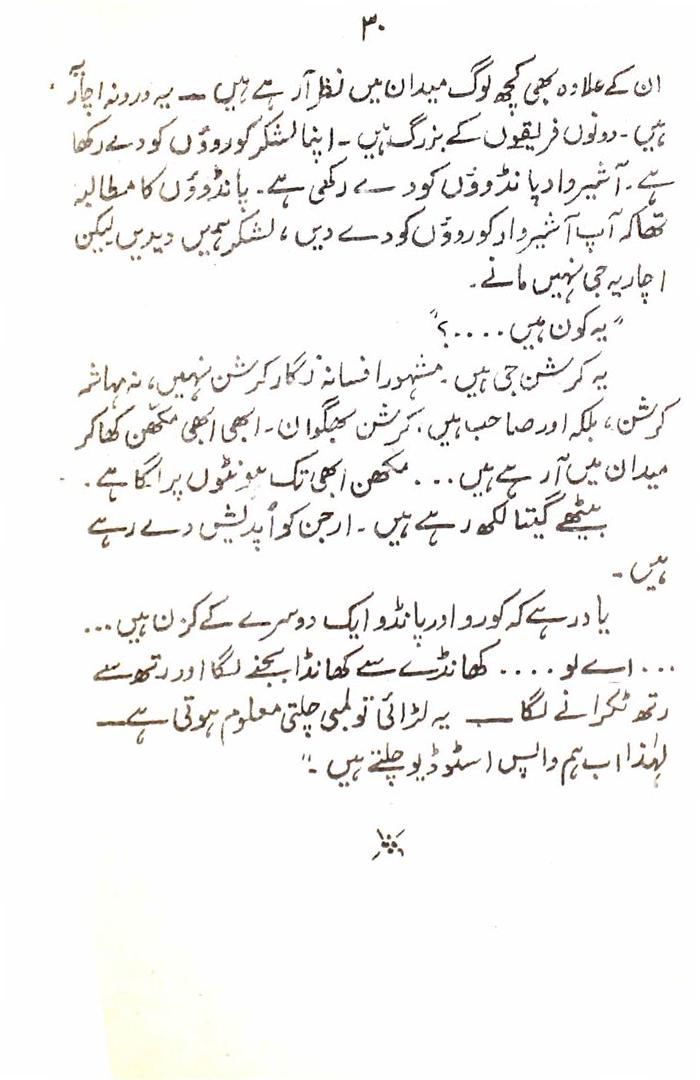 ۳۰
ان کے علاوہ بھی کچھ لوگ میدان میں نظر آ رہے ہیں ـــ یہ درونہ اچاریہ
ہیں ۔ دونوں فریقوں کے بزرگ ہیں ۔ اپنا لشکر کوروؤں کو دے رکھا
ہے ۔ آشیرواد پانڈوؤں کو دے رکھی ہے ۔ پانڈوؤں کا مطالبہ
تھا کہ آپ آشیرواد کوروؤں کو دے دیں ، لشکر ہمیں دیدیں لیکن
اچاریہ جی نہیں مانے ۔
" یہ کون ہیں .... ؟ "
یہ کرشن جی ہیں ۔ مشہور افسانہ نگار کرشن نہیں ، نہ مہاشہ
کرشن ، بلکہ اور صاحب ہیں ، کرشن بھگوان ۔ ابھی ابھی مکھن کھا کر
میدان میں آ رہے ہیں ... مکھن ابھی تک ہونٹوں پر لگا ہے ۔
بیٹھے گیتا لکھ رہے ہیں ۔ ارجن کو اُپدیش دے رہے
ہیں ۔
یاد رہے کہ کورو اور پانڈو ایک دوسرے کے کزن ہیں ...
... اے لو .... کھانڈے سے کھانڈا بجنے لگا اور رتھ سے
رتھ ٹکرانے لگا ـــ یہ لڑائی تو لمبی چلتی معلوم ہوتی ہے ـــ
لہٰذا اب ہم واپس اسٹوڈیو چلتے ہیں ۔"